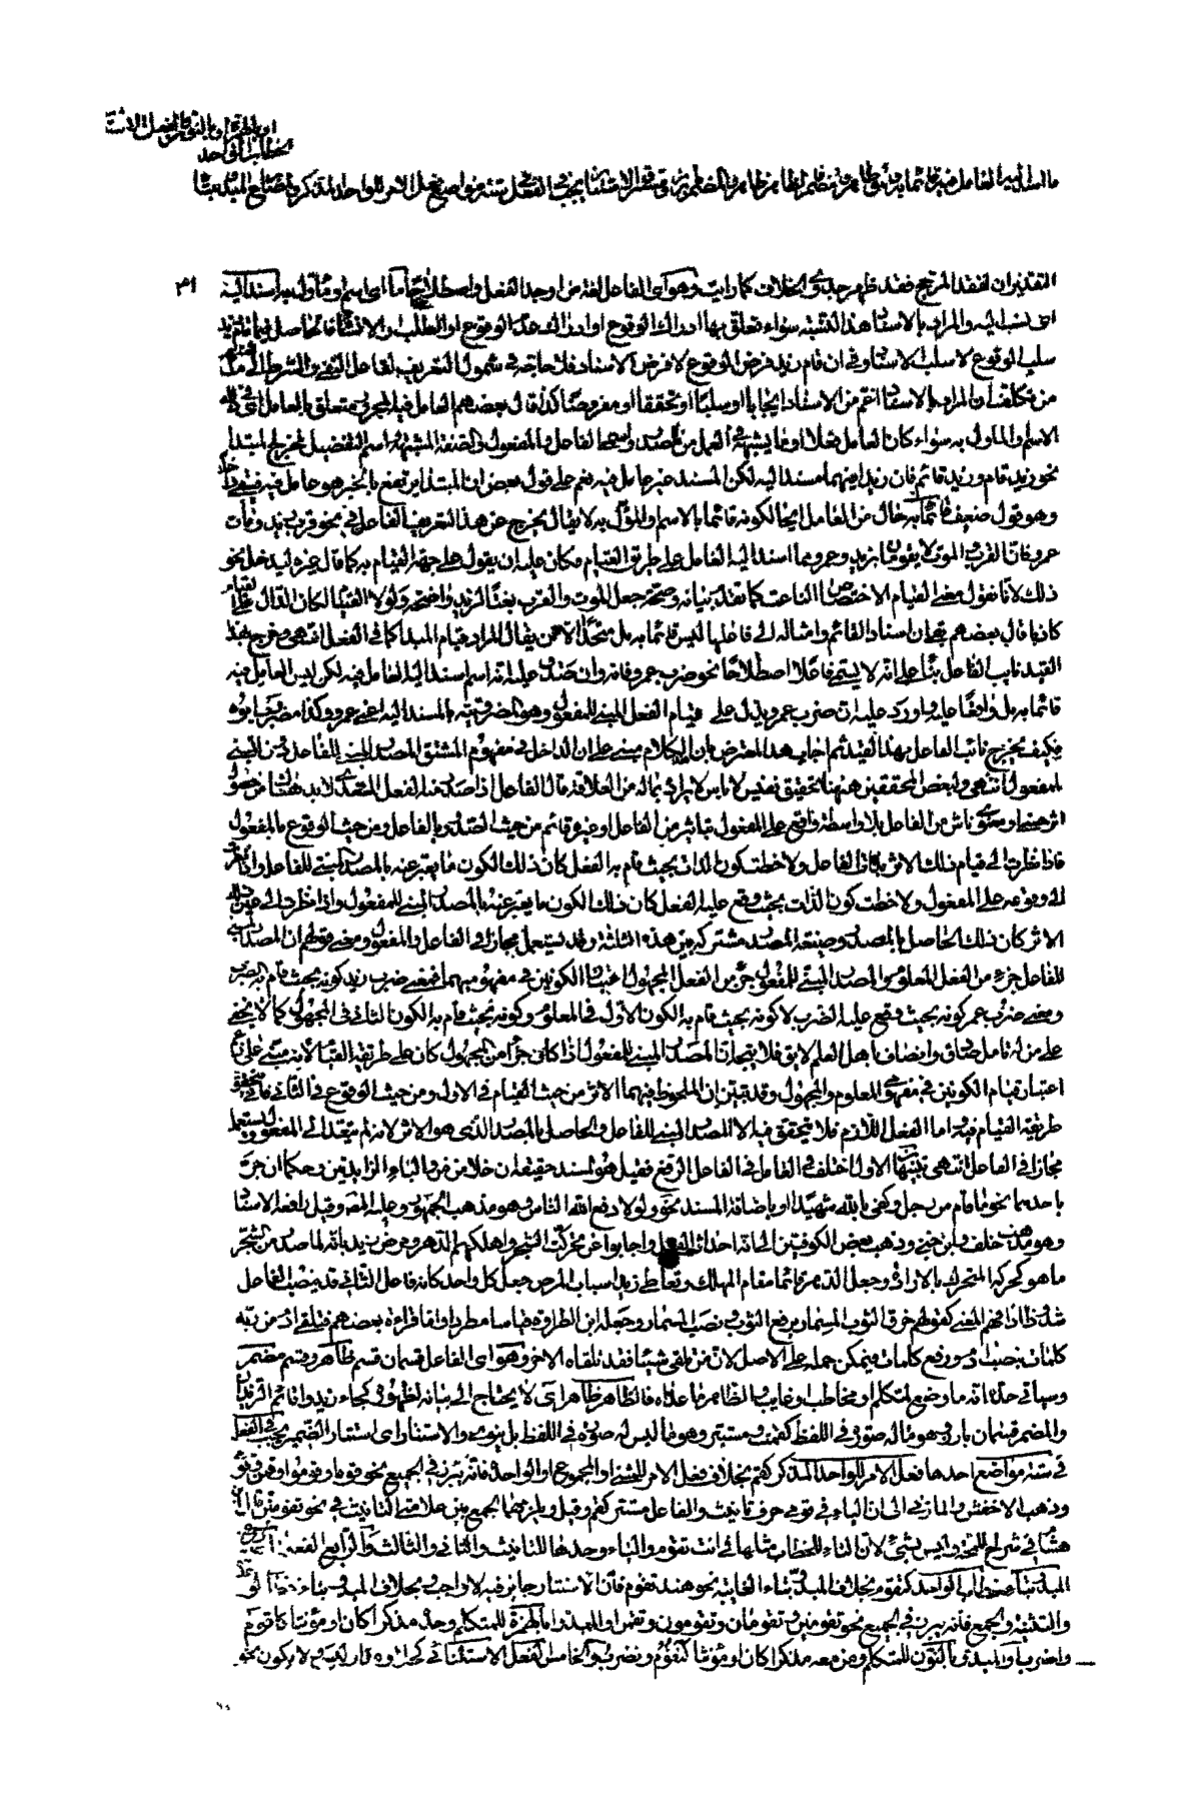 او بالهمزة او بالنون وفعل الاستثناء
بخطاب الواحد
ما اسند اليه الفاعل فيه قائما به وهو ظاهر ومضمر فالظاهر ظاهر والمضمر بارز ومستتر والاستتار يجب فى الفعل فى ستة مواضع فعل الامر للواحد المذكر والمضارع المبدو بتاء
٣١
التقديران لفقد المرجح فقد ظهر جدوى الخلاف كما رايت وهو اى الفاعل لغة من اوجد الفعل واصطلاحا ما اى اسم او مأول به اسند اليه
اى نسب اليه والمراد بالاسناد هنا النسبة سواء تعلق بها ادراك الوقوع او ادراك عدم الوقوع او الطلب او الانشاء فالحاصل فى ما قام زيد
سلب الوقوع لا سلب الاسناد وفى ان قام زيد فرض الوقوع لا فرض الاسناد فلا حاجة فى شمول التعريف لفاعل النفى والشرط الى
من تكلف ان المراد بالاسناد اعم من الاسناد ايجابا او سلبا او محققا او مفروضا كذا قال بعضهم العامل فيه المجرور متعلق بالعامل اى فى
الاسم والماول به سواء كان العامل فعلا او ما يشبهه فى العمل من المصدر واسمى الفاعل والمفعول والصفة المشبهة واسم التفضيل فخرج المبتدا
نحو زيد قام وزيد قائم فان زيدا فيهما مسند اليه لكن المسند غير عامل فيه نعم على قول بعض ان المبتدا يرتفع بالخبر هو عامل فيه فينتقض
وهو قول ضعيف قائما به حال من العامل ايحا لكونه قائما بالاسم والمؤل به لا يقال يخرج عن هذا التعريف الفاعل فى نحو قرب زيد ومات
عمرو فان القرب والموت لا يقومان بزيد وعمرو مما اسند اليه الفاعل على طريق القيام وكان عليه ان يقول على جهة القيام به كما قال غيره ليدخل نحو
ذلك لانا نقول معنى القيام الاختصاص الناعت كما تقدم بيانه وصحة جعل الموت والقرب نعتا لزيد واضحة ولولا القيام لكان القائل
كاذبا قال بعضهم يجئ ان اسناد القائم وامثاله الى فاعلها ليس قائما به بل متحدا الا ان يقال المراد قيام المبدا كما فى الفعل انتهى وخرج بهذا
القيد نايب الفاعل بناء على انه لا يسمى فاعلا اصطلاحا نحو ضرب عمرو فانه وان صدق عليه انه اسم اسند اليه العامل فيه لكن ليس العامل فيه
قائما به بل واقعا عليه واورد عليه ان ضرب عمرو يدل على قيام الفعل المبنى للمفعول وهو المضروبية بالمسند اليه اعنى عمرو وكذا مضروب ابوه
فكيف يخرج نائب الفاعل بهذا القيد ثم اجاب هذا المعترض بان الكلام مبنى على ان الداخل فى مفهوم المشتق المصدر المبنى للفاعل دون المبنى
للمفعول انتهى ولبعض المحققين ههنا تحقيق نفيس لا باس لايراد بماله من العلاقة قال الفاعل اذا صدر منه الفعل المتعدى لا بد هناك من حصول
اثر حسى او معنوى ناش من الفاعل بلا واسطة واقع على المفعول بتاثير من الفاعل او غيره قائم من حيث الصدور بالفاعل ومن حيث الوقوع بالمفعول
فاذا نظرت الى قيام ذلك الاثر بذات الفاعل ولاحظت كون الذات بحيث قام به الفعل كان ذلك الكون ما يعبر عنه بالمصدر المبنى للفاعل واذا نظرت
الى وقوعه على المفعول ولاحظت كون الذات بحيث وقع عليه الفعل كان ذلك الكون ما يعبر عنه بالمصدر المبنى للمفعول واذا نظرت الى عين ذلك
الاثر كان ذلك الحاصل بالمصدر وصيغة المصدر مشتركة بين هذه الثلثة وقد يستعمل مجازا فى الفاعل والمفعول ومعنى قولهم ان المصدر المبنى
للفاعل جزء من الفعل المعلوم والمصدر المبنى للمفعول جزء من الفعل المجهول اعتبار الكونين فى مفهوميهما فمعنى ضرب زيد كونه بحيث قام به الضرب
ومعنى ضرب عمرو كونه بحيث وقع عليه الضرب لا كونه بحيث قام به الكون الاول فى المعلوم وكونه بحيث قام به الكون الثانى فى المجهول كما لا يخفى
على من له تامل صادق وانصاف باهل العلم لايق فلا يتجه ان المصدر المبنى للمفعول اذا كان جزأ من المجهول كان على طريقة القيام لانه مبنى على
اعتبار قيام الكونين فى مفهومى المعلوم والمجهول وقد تبين ان الملحوظ فيهما الاثر من حيث القيام فى الاول ومن حيث الوقوع فى الثانى فاين يتحقق
طريقة القيام فيه واما الفعل اللازم فلا يتحقق فيه الا المصدر المبنى للفاعل والحاصل بالمصدر الذى هو الاثر لانه لم يتعد الى المفعول ويستعمل
مجازا فى الفاعل انتهى تنبيهات الاول اختلف فى العامل فى الفاعل الرفع فقيل هو المسند حقيقة ان خلا من من والباء الزايدتين وحكما ان جر
باحدهما نحو ما قام من رجل وكفى بالله شهيدا او باضافة المسند نحو ولولا دفع الله الناس وهو مذهب الجمهور وعليه المص وقيل رافعه الاسناد
وهو مذهب خلف وابن جنى وذهب بعض الكوفيين الى انه احداث الفعل واجابوا عن تحركت الشجر واهلكهم الدهر ومرض زيد بانه لما صدر من الشجر
ما هو كحركة المتحرك بالارادة وجعل الدهر قائما مقام المهلك وتعاطى زيد اسباب المرض جعل كل واحد كانه فاعل الثانى قد ينصب الفاعل
شذوذا اذا فهم المعنى كقولهم خرق الثوب المسمار برفع الثوب ونصب المسمار وجعله ابن الطراوة قياسا مطردا واما قراءة بعضهم فتلقى آدم من ربه
كلمات بنصب آدم ورفع كلمات فيمكن حمله على الاصل لان من تلقى شيئا فقد تلقاه الاخر وهو اى الفاعل قسمان قسم ظاهر وقسم مضمر
وسياتى حده انه ما وضع لمتكلم او مخاطب او غايب والظاهر ما عداه فالظاهر ظاهر اى لا يحتاج الى بيانه لظهوره كجاء زيد واقائم الزيدان
والمضمر قسمان بارز وهو ما له صورة فى اللفظ كقمت ومستتر وهو ما ليس له صورة فى اللفظ بل ينوى والاستتار اى استتار الضمير يجب فى الفعل
فى ستة مواضع احدها فعل الامر للواحد المذكر كقم بخلاف فعل الامر للمثنى او المجموع او الواحدة فانه يبرز فى الجميع نحو قوما وقوموا وقمن وقومى
وذهب الاخفش والمازنى الى ان الياء فى قومى حرف تانيث والفاعل مستتر كقم وقيل ويلزمهما الجمع بين علامتى التانيث فى نحو تقومين قال ابن
هشام فى شرح اللمحة وليس بشئ لان التاء للخطاب مثلها فى انت تقوم والياء وحدها للتانيث والثانى والثالث والرابع الفعل المضارع
المبدو بتاء خطاب الواحد كتقوم بخلاف المبدو بتاء الغائبة نحو هند تقوم فان الاستتار جايز فيه لا واجب وبخلاف المبدو بتاء خطاب
والتثنية والجمع فانه يبرز فى الجميع نحو تقومين وتقومان وتقومون وتقمن او المبدو بالهمزة للمتكلم وحده مذكرا كان او مؤنثا كاقوم
واضرب او المبدو بالنون للمتكلم ومن معه مذكرا كان او مؤنثا كنقوم ونضرب والخامس كفعل الاستثناء كخلا وعدا وليس ولا يكون نحو